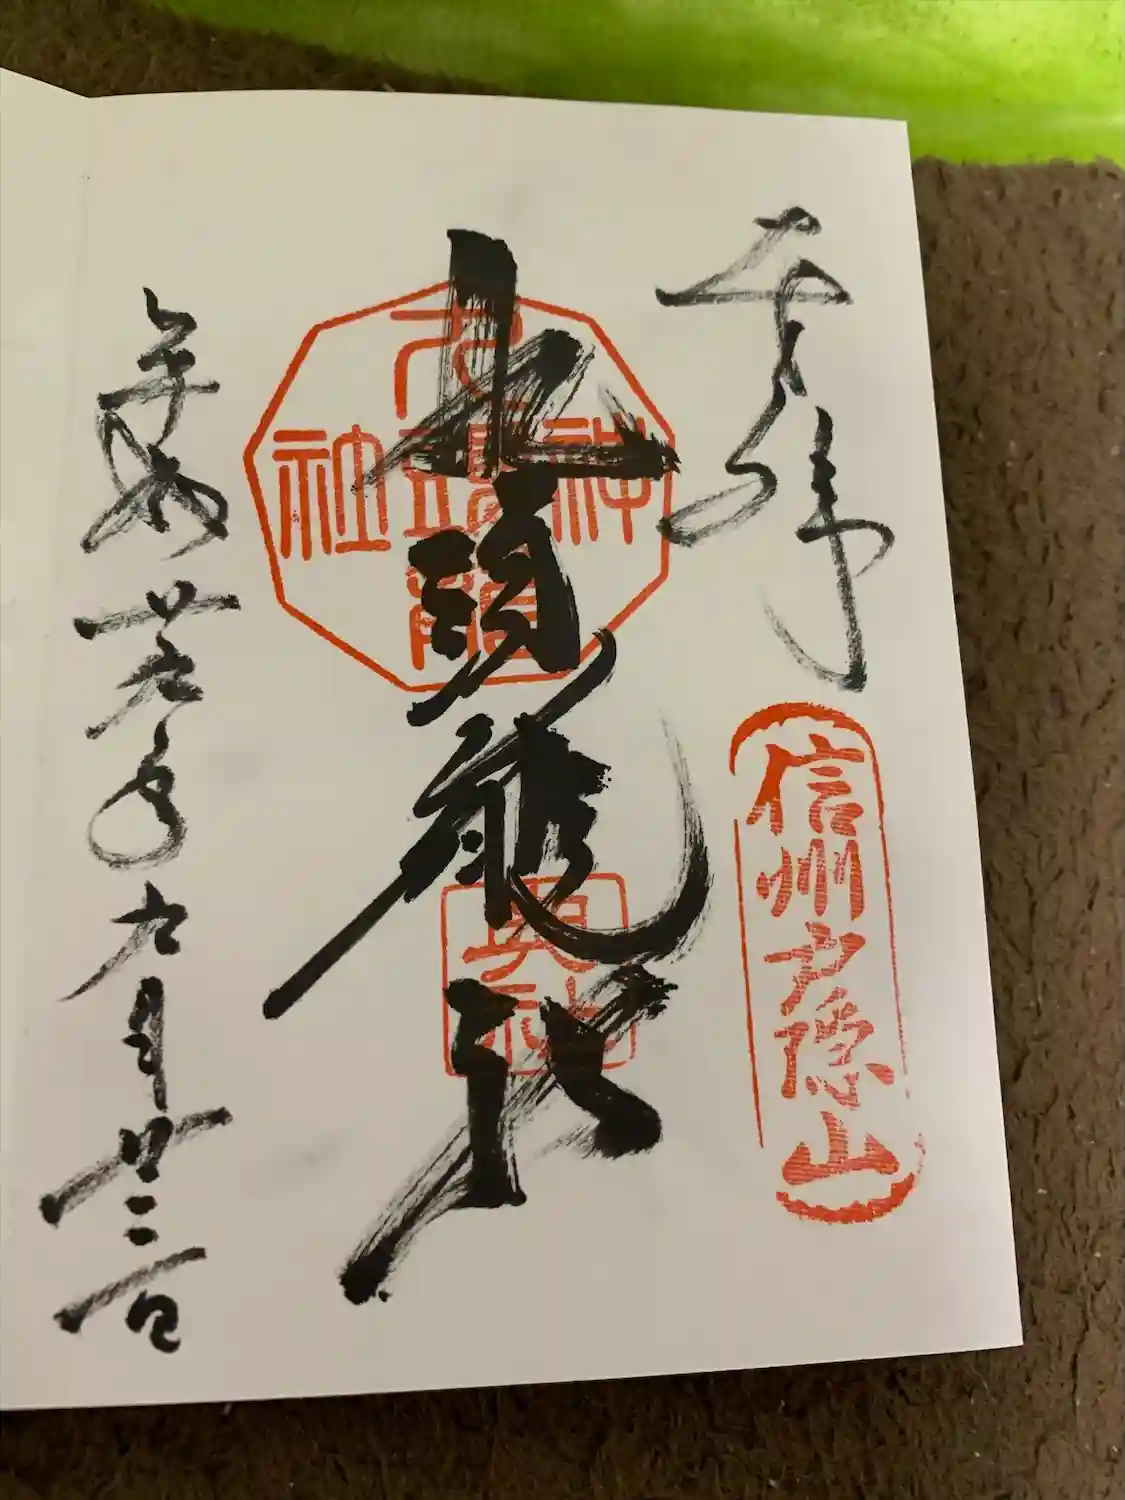 奉拝
信州戸隠山
九頭龍社
九頭龍神社
奥社
平成
年九月廿三日